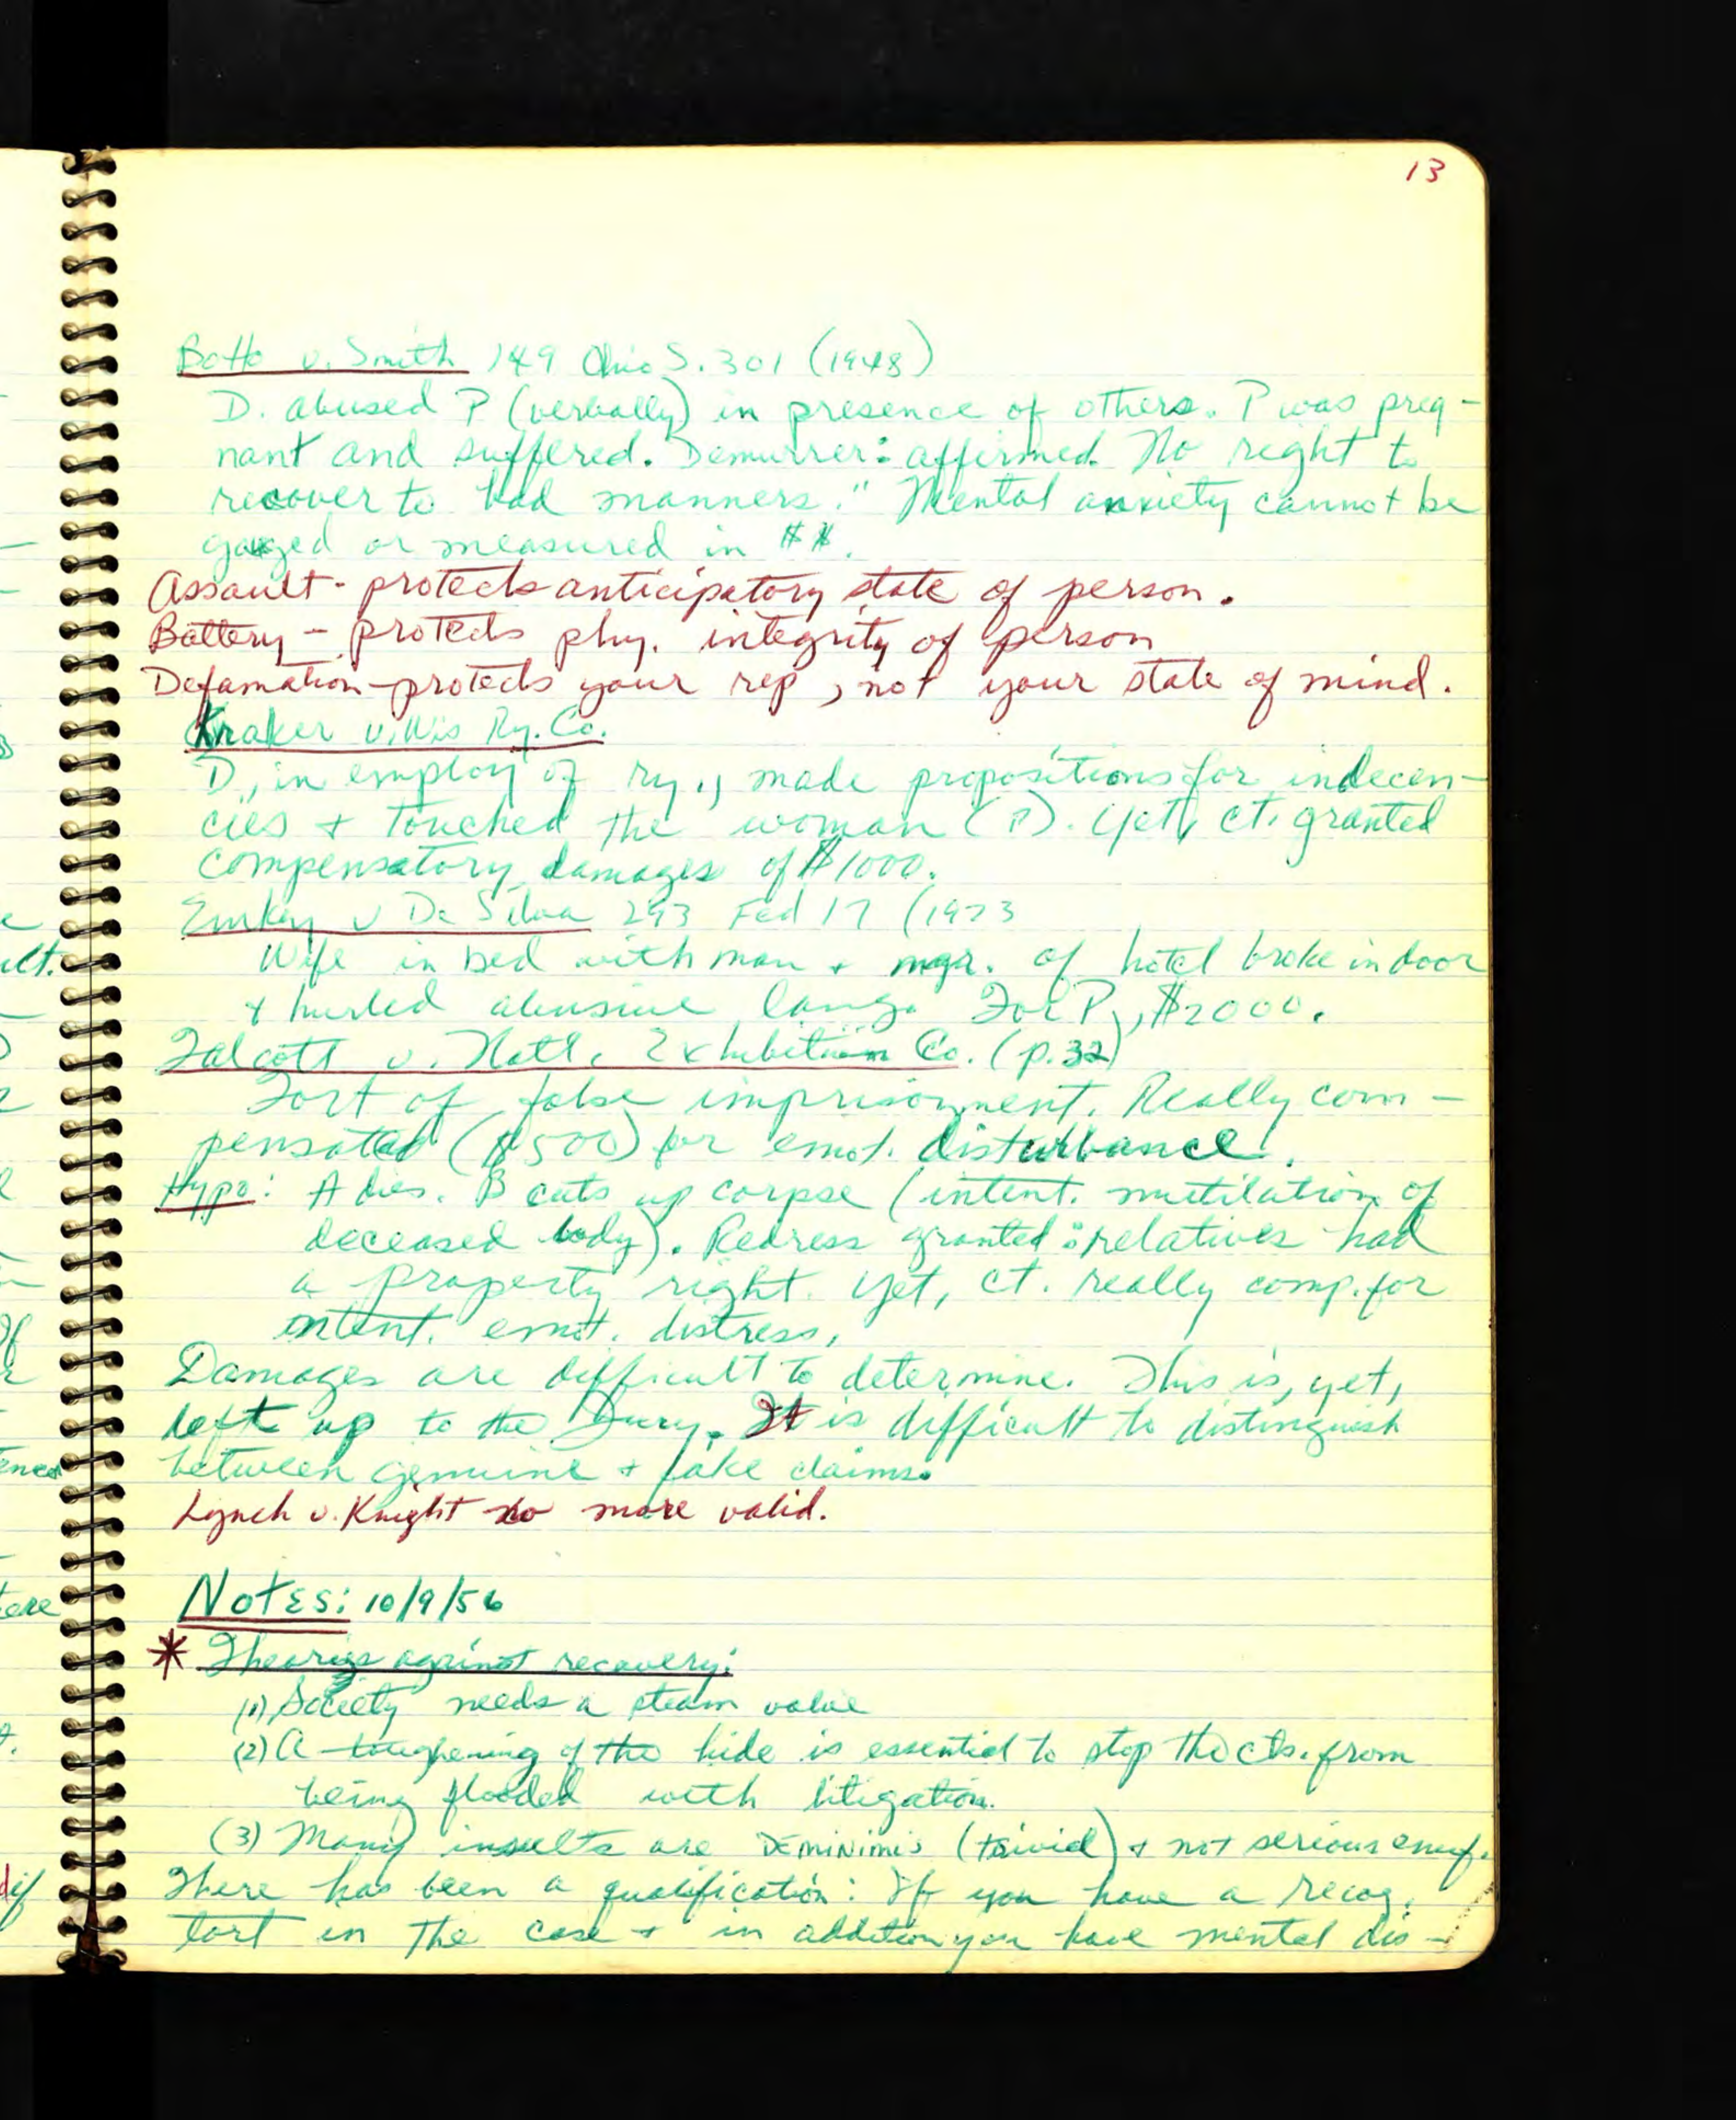 13
Botto v. Smith 149 Ohio S. 301 (1948)
D. abused P (verbally) in presence of others. P was preg-
nant and suffered. Demurrer: affirmed. No right to
recover to bad manners." Mental anxiety cannot be
gauged or measured in $$.
Assault - protects anticipatory state of person.
Battery - protects phy. integrity of person
Defamation - protects your rep, not your state of mind.
Kraker v. Wis Ry. Co.
D, in employ of ry., made propositions for indecen-
cies + touched the woman (P). Yet, ct. granted
compensatory damages of $1000.
Emkey v De Silva 293 Fed 17 (1923
Wife in bed with man + mgr. of hotel broke in door
+ hurled abusive lang. For P, $2000.
Talcott v. Natl. Exhibition Co. (p.32)
Tort of false imprisonment. Really com-
pensated ($500) for emot. disturbance.
Hypo: A dies. B cuts up corpse (intent. mutilation of
deceased body). Redress granted: relatives had
a property right. Yet, ct. really comp. for
intent. emot. distress,
Damages are difficult to determine. This is, yet,
left up to the Jury. It is difficult to distinguish
between genuine + fake claims.
Lynch v. Knight no more valid.
Notes: 10/9/56
* Theories against recovery:
(1) Society needs a steam value
(2) A toughening of the hide is essential to stop the cts. from
being flooded with litigation.
(3) Many insults are DEMINIMIS (trivial) + not serious enuf.
There has been a qualification: If you have a recog.
tort in the case + in addition you have mental dis-